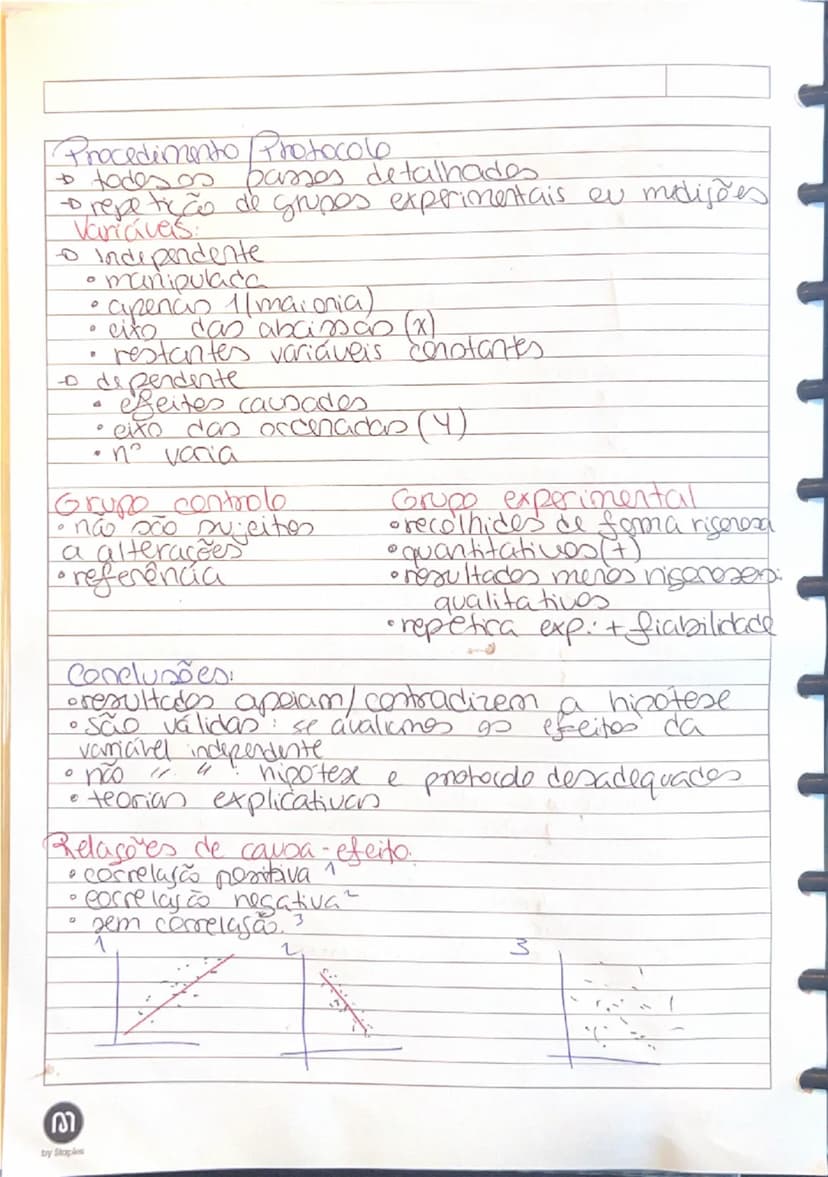 Procedimento/Protocolo
→ todos os passos detalhados
→ repetição de grupos experimentais ou medições
Variáveis:
→ Independente
• manipulada
• apenas 1 (maioria)
• eixo das abcissas (x)
• restantes variáveis constantes
→ dependente
• efeitos causados
• eixo das orcenadas (Y)
• nº varia
Grupo controlo
• não são sujeitos
a alterações
• referência
Grupo experimental
• recolhides de forma rigorosa
• quantitativos (+)
• resultados menos rigorosos:
qualitativos
• repetica exp.: + fiabilidade
Conclusões:
• resultados apoiam/contradizem a hipótese
• são válidas: se avaliamos os efeitos da
variável independente
• não " " : hipótese e protocolo desadequados
• teorias explicativas
Relações de causa-efeito:
• correlação positiva 1
• correlação negativa 2
• sem correlação. 3
1 2 3
by Staples